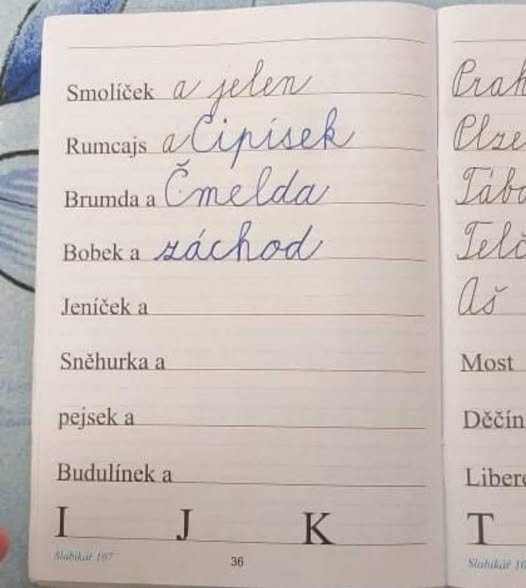 Smolíček a jelen
Rumcajs a Cipísek
Brumda a Čmelda
Bobek a záchod
Jeníček a
Sněhurka a
pejsek a
Budulínek a
I J K
Slabikář 107
36
Prah
Plze
Tábo
Telč
Aš
Most
Děčín
Libere
T
Slabikář 10